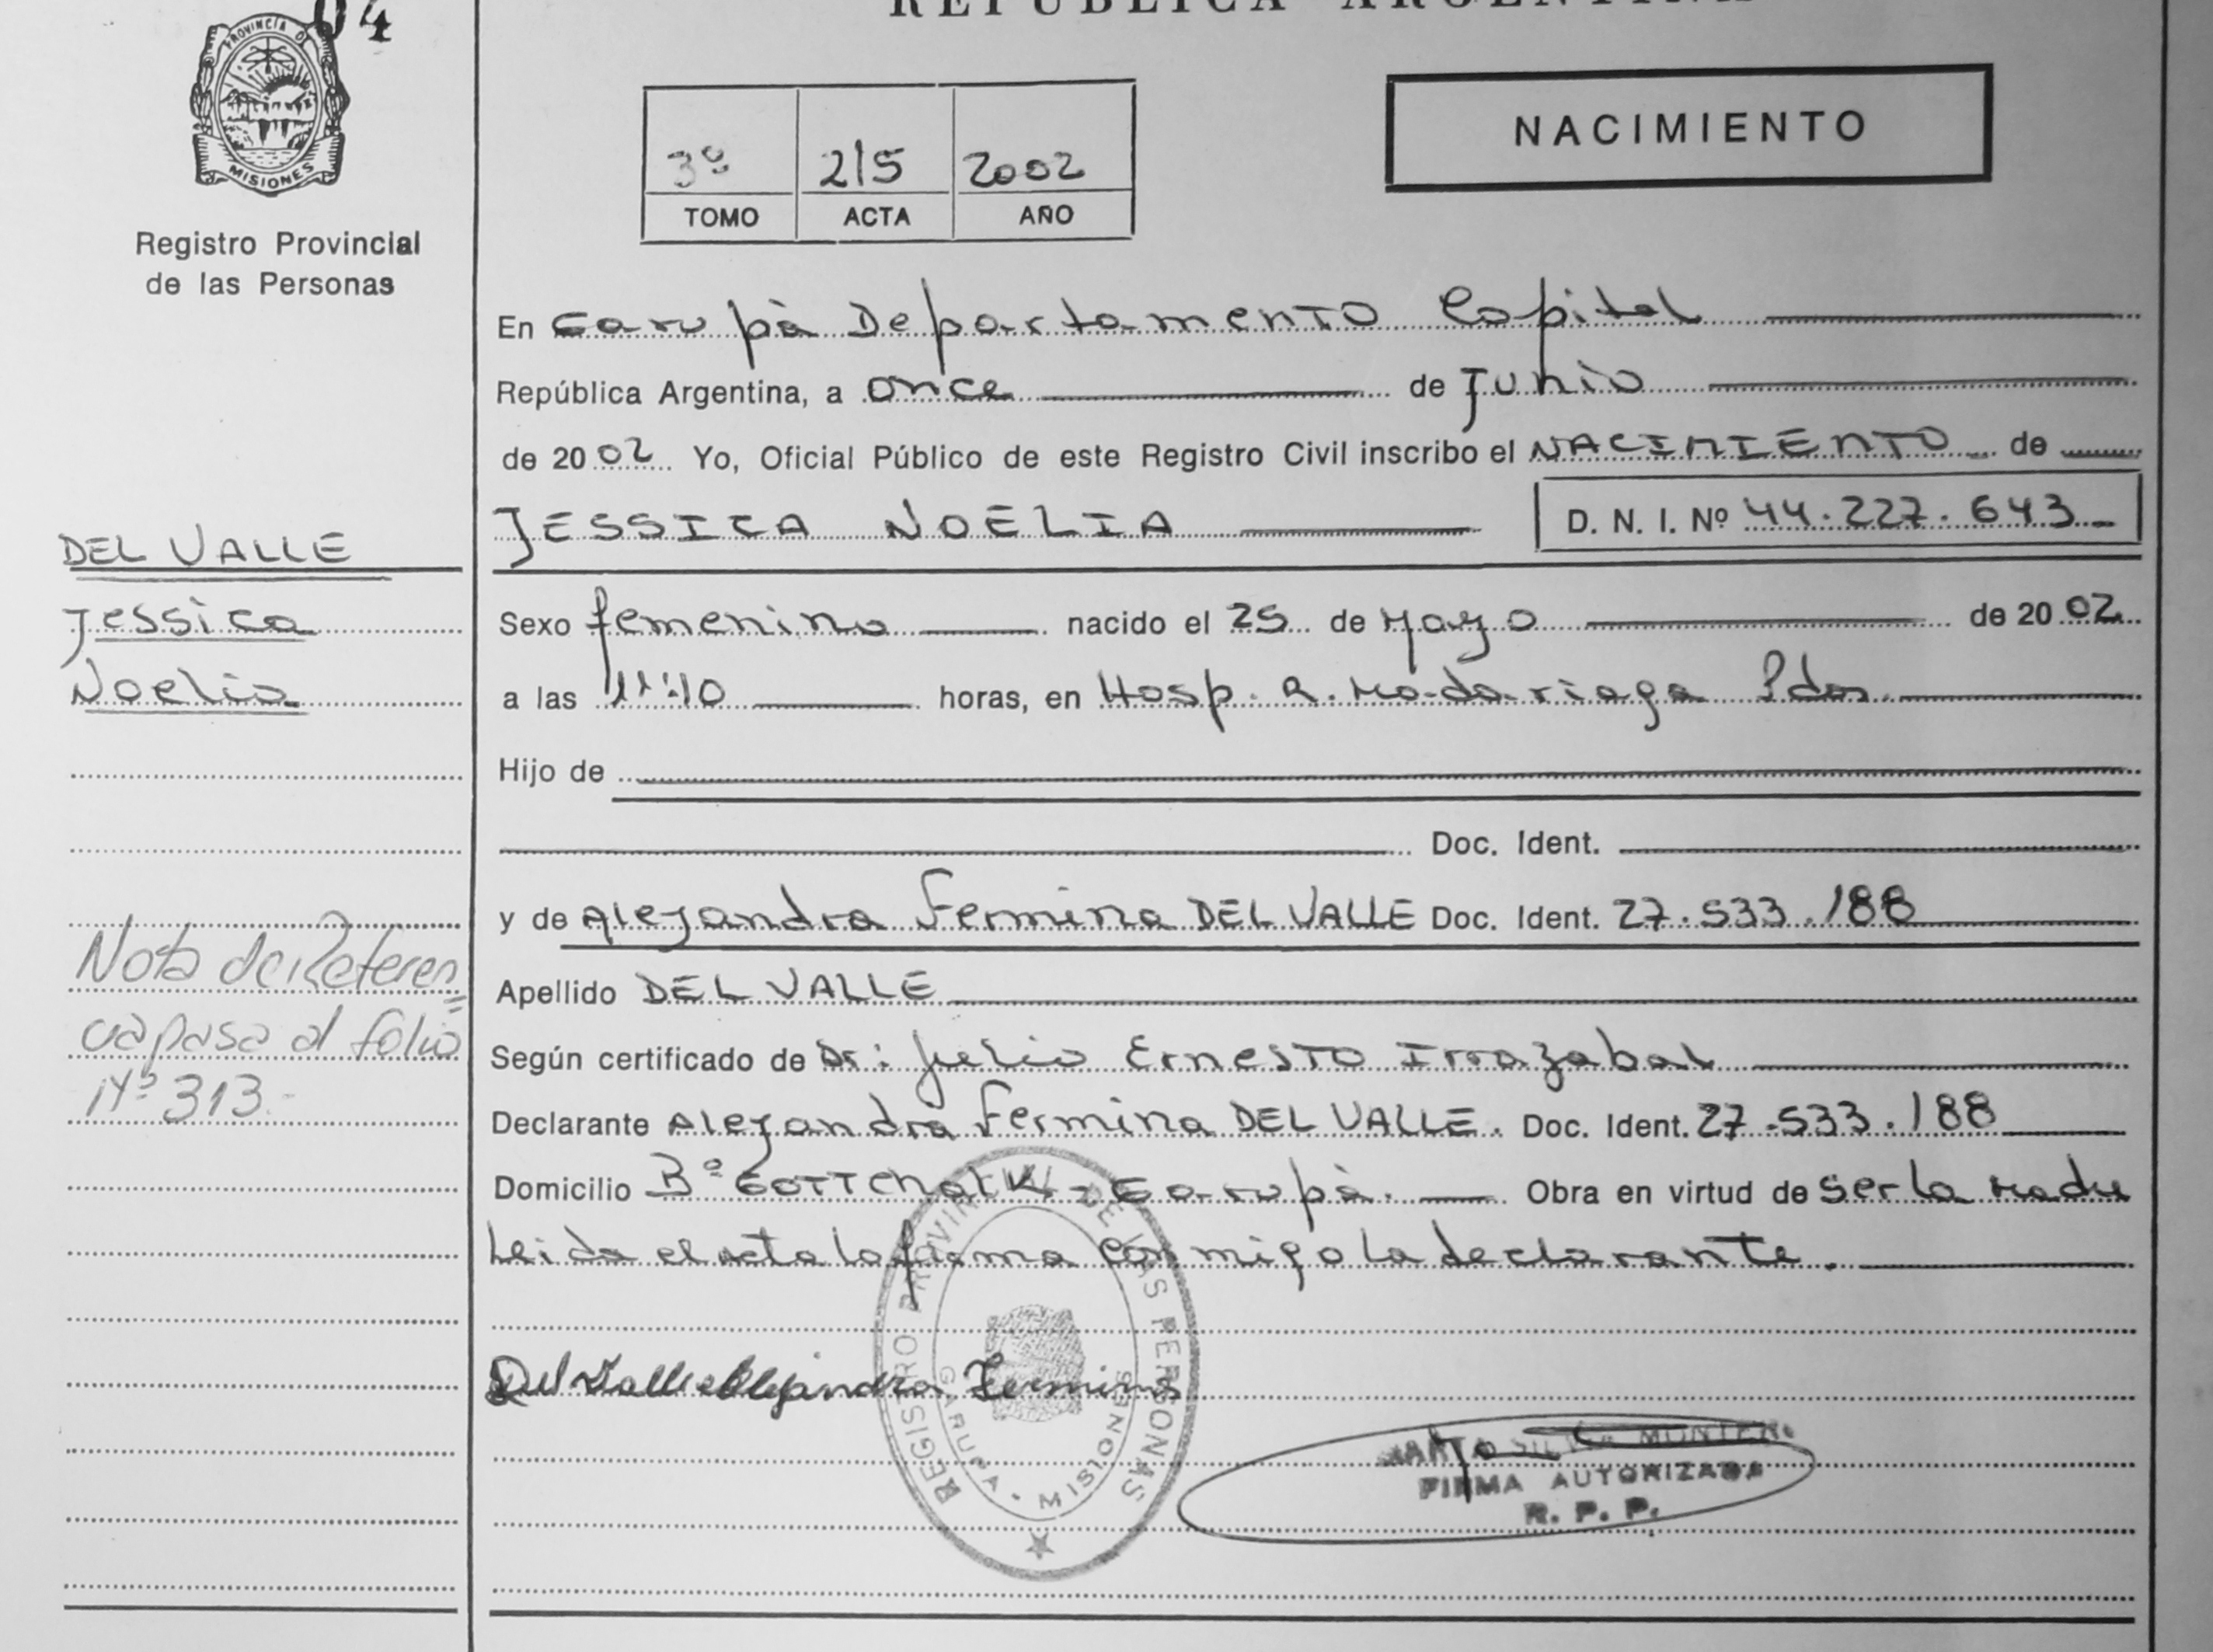 04
REPUBLICA ARGENTINA
PROVINCIA D
MISIONES
Registro Provincial
de las Personas
3º 215 2002
TOMO ACTA AÑO
NACIMIENTO
En Garupà Departamento Capital
República Argentina, a once de Junio
de 2002 Yo, Oficial Público de este Registro Civil inscribo el NACIMIENTO de
JESSICA NOELIA D. N. I. Nº 44.227.643
DEL VALLE
Jessica
Noelia
Sexo femenino nacido el 25 de Mayo de 2002
a las 11:10 horas, en Hosp. R. Madariaga Pdas.
Hijo de
Doc. Ident.
y de Alejandra Fermina DEL VALLE Doc. Ident. 27.533.188
Apellido DEL VALLE
Nota de Referen
cia pasa al folio
Nº 313.-
Según certificado de Dr: Julio Ernesto Irrazabal
Declarante Alejandra Fermina DEL VALLE. Doc. Ident. 27.533.188
Domicilio Bº - Garupà. Obra en virtud de ser la Madre
Leida el acta la firma conmigo la declarante.
Del Valle Alejandra Fermina
REGISTRO PROVINCIAL DE LAS PERSONAS
GARUPA · MISIONES
FIRMA AUTORIZADA
R. P. P.